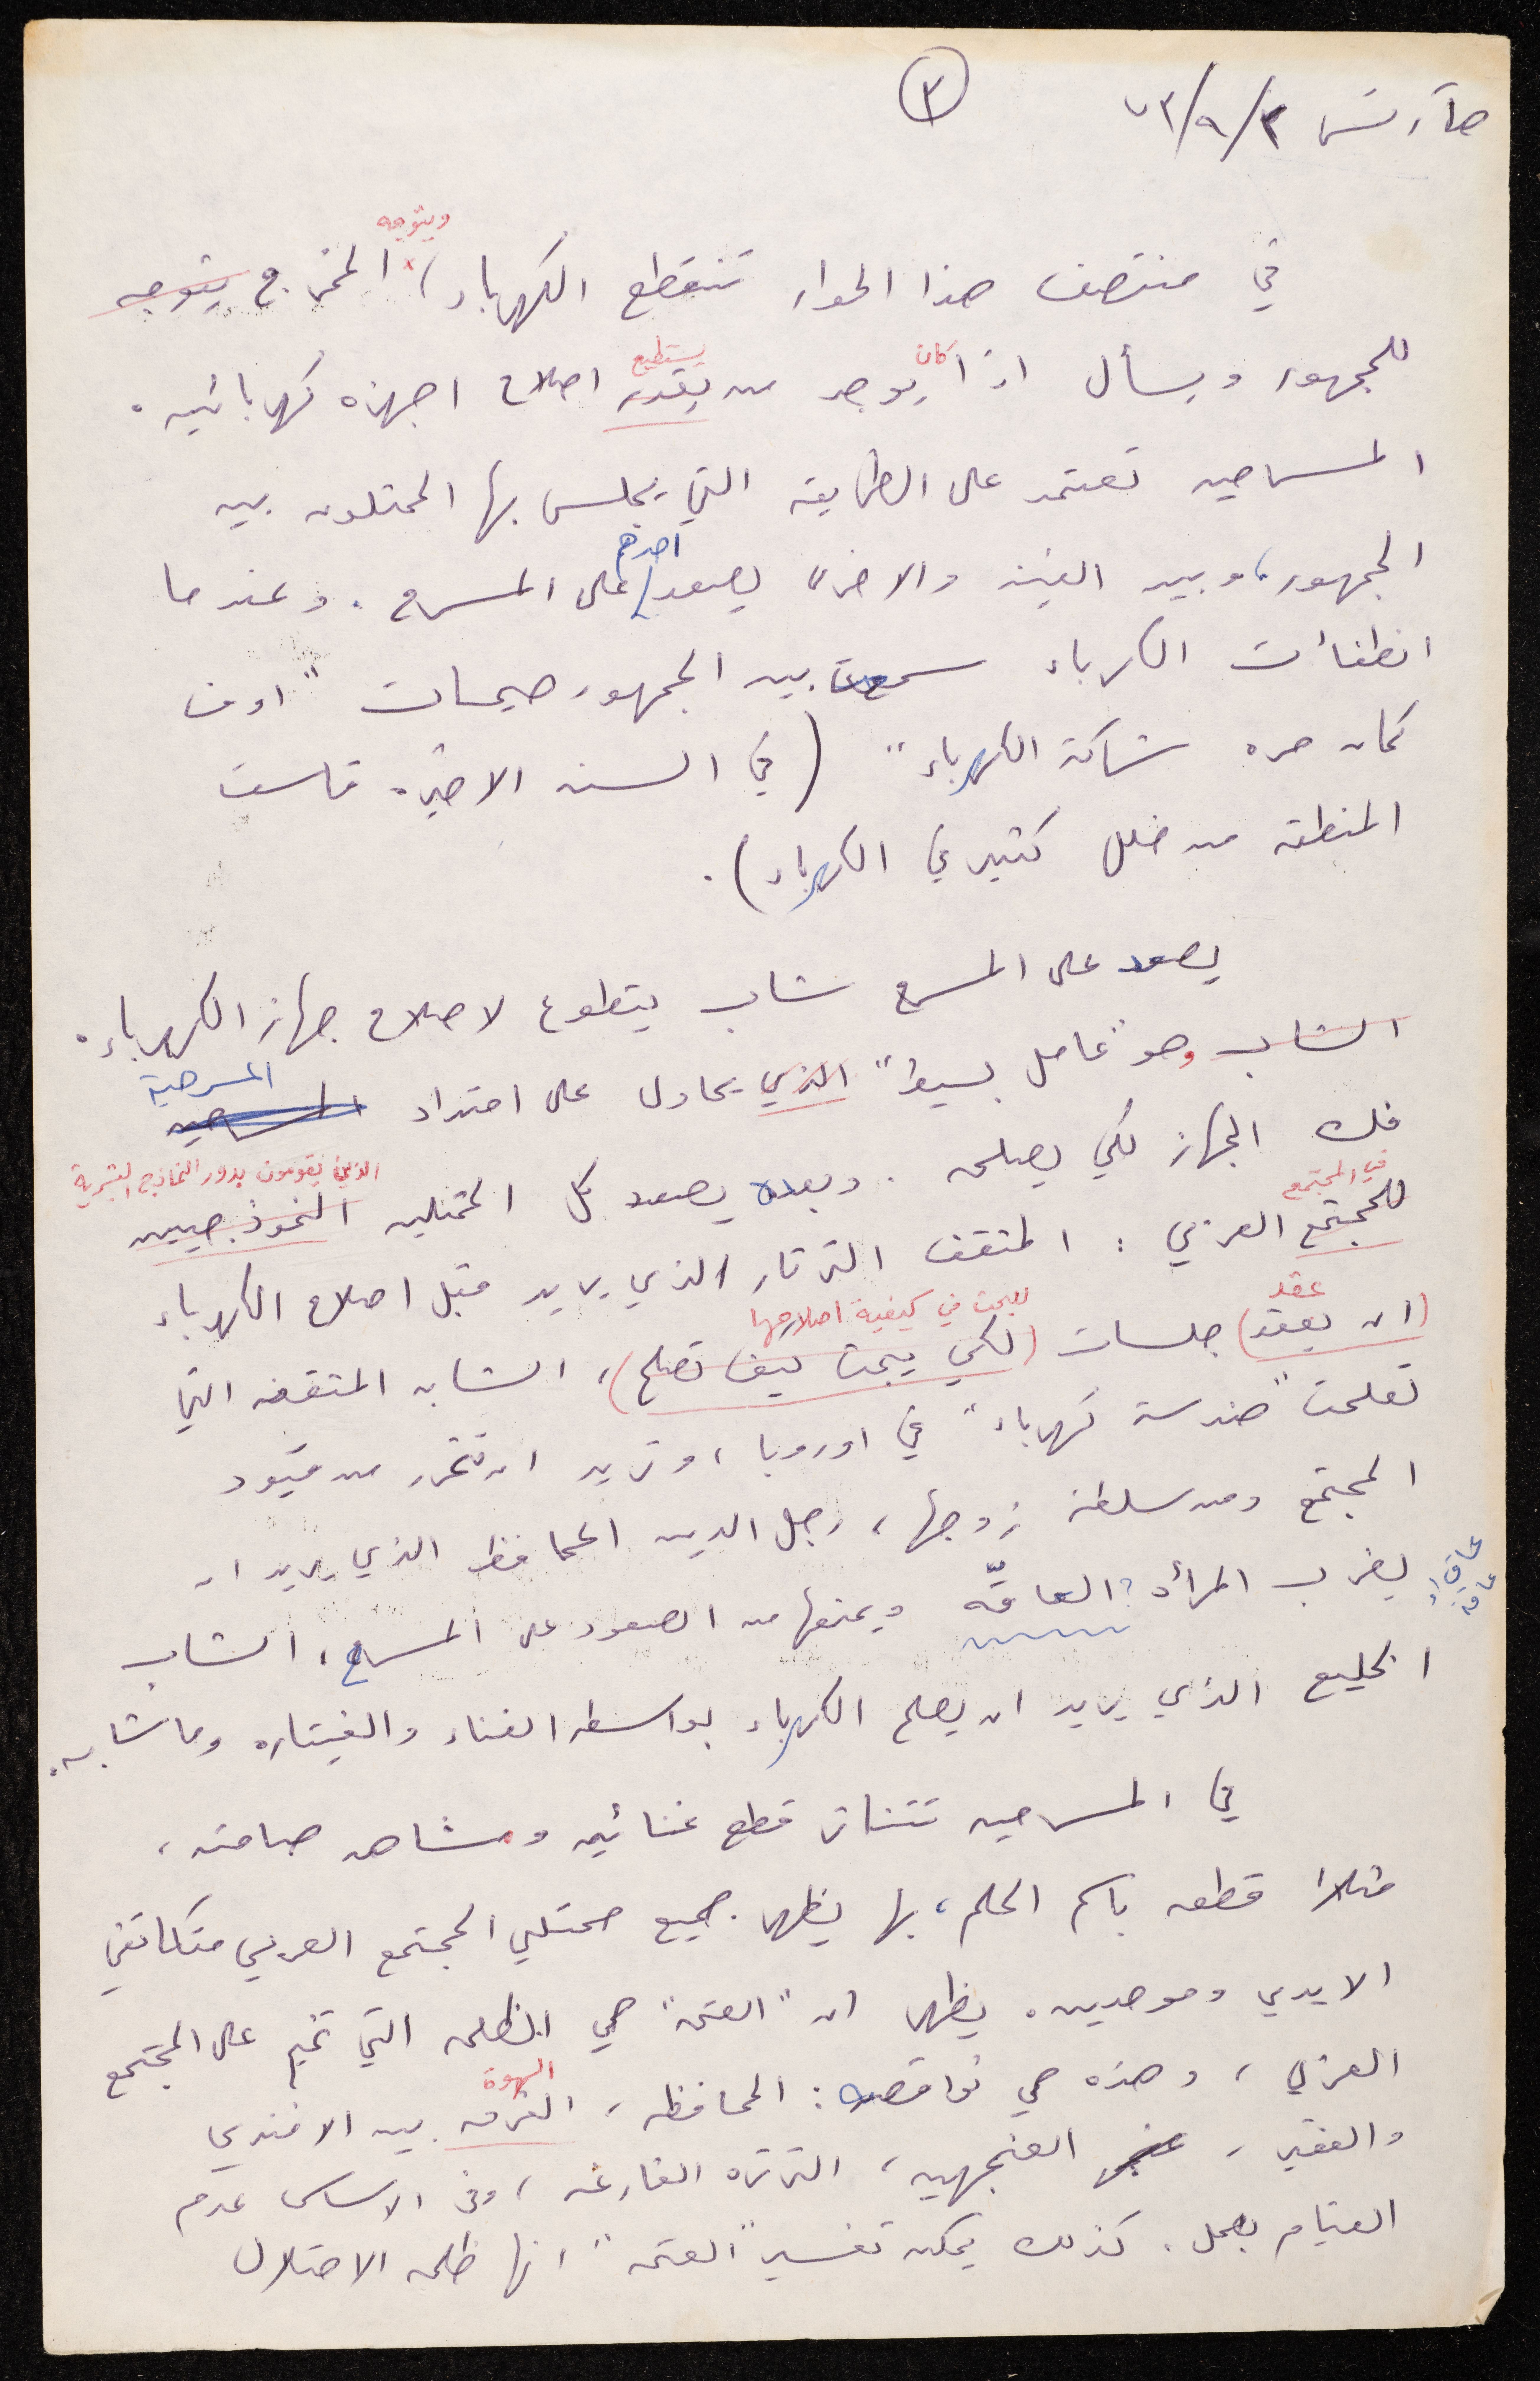 هآرتس ٧٣/٩/٣
٢
ويتوجه
في منتصف هذا الحوار تنقطع الكهرباء، المخرج يتوجه
كان يستطيع
للجمهور ويسأل اذا يوجد من يقدر اصلاح اجهزه كهربائيه.
المسرحيه تعتمد على الطريقه التي يجلس بها الممثلون بين
احدهم
الجمهور، وبين الفينه والاخرى يصعد على المسرح. وعندما
انطفأت الكهرباء سمعت بين الجمهور صيحات "اوف
كمان مره شركة الكهرباء" (في السنه الاخيره قاست
المنطقه من خلل كثير في الكهرباء).
يصعد على المسرح شاب يتطوع لاصلاح جهاز الكهرباء.
المسرحية
الشاب وهو "عامل بسيط" الذي يحاول على امتداد المسرحيه
فك الجهاز لكي يصلحه. وبعده يصعد كل الممثلين النموذجيين
الذين يقومون بدور النماذج البشرية
في المجتمع
للمجتمع العربي: المثقف الثرثار الذي يريد قبل اصلاح الكهرباء
عقد للبحث في كيفية اصلاحها
(ان يعقد) جلسات (لكي يبحث كيف تصلح)، الشابه المثقفه التي
تعلمت "هندسة كهرباء" في اوروبا، وتريد ان تتحرر من قيود
المجتمع ومن سلطة زوجها، رجل الدين المحافظ الذي يريد ان
يضرب المرأه العاقّه ويمنعها من الصعود على المسرح، الشاب
الخليع الذي يريد ان يصلح الكهرباء بواسطه الغناء والغيتاره وما شابه.
في المسرحيه تتناثر قطع غنائيه ومشاهد صامته،
مثلا قطعه باسم الحلم، بها يظهر جميع ممثلي المجتمع العربي متكاتفي
الايدي وموحدين. يظهر ان "العتمه" هي الظلمه التي تخيم على المجتمع
الهوة
العربي، وهذه هي نواقصه: المحافظه، الفرق بين الافندي
والفقير، العنجهيه، الثرثره الفارغه، وفي الاساس عدم
القيام بعمل. كذلك يمكن تفسير "العتمه" انها ظلمه الاحتلال